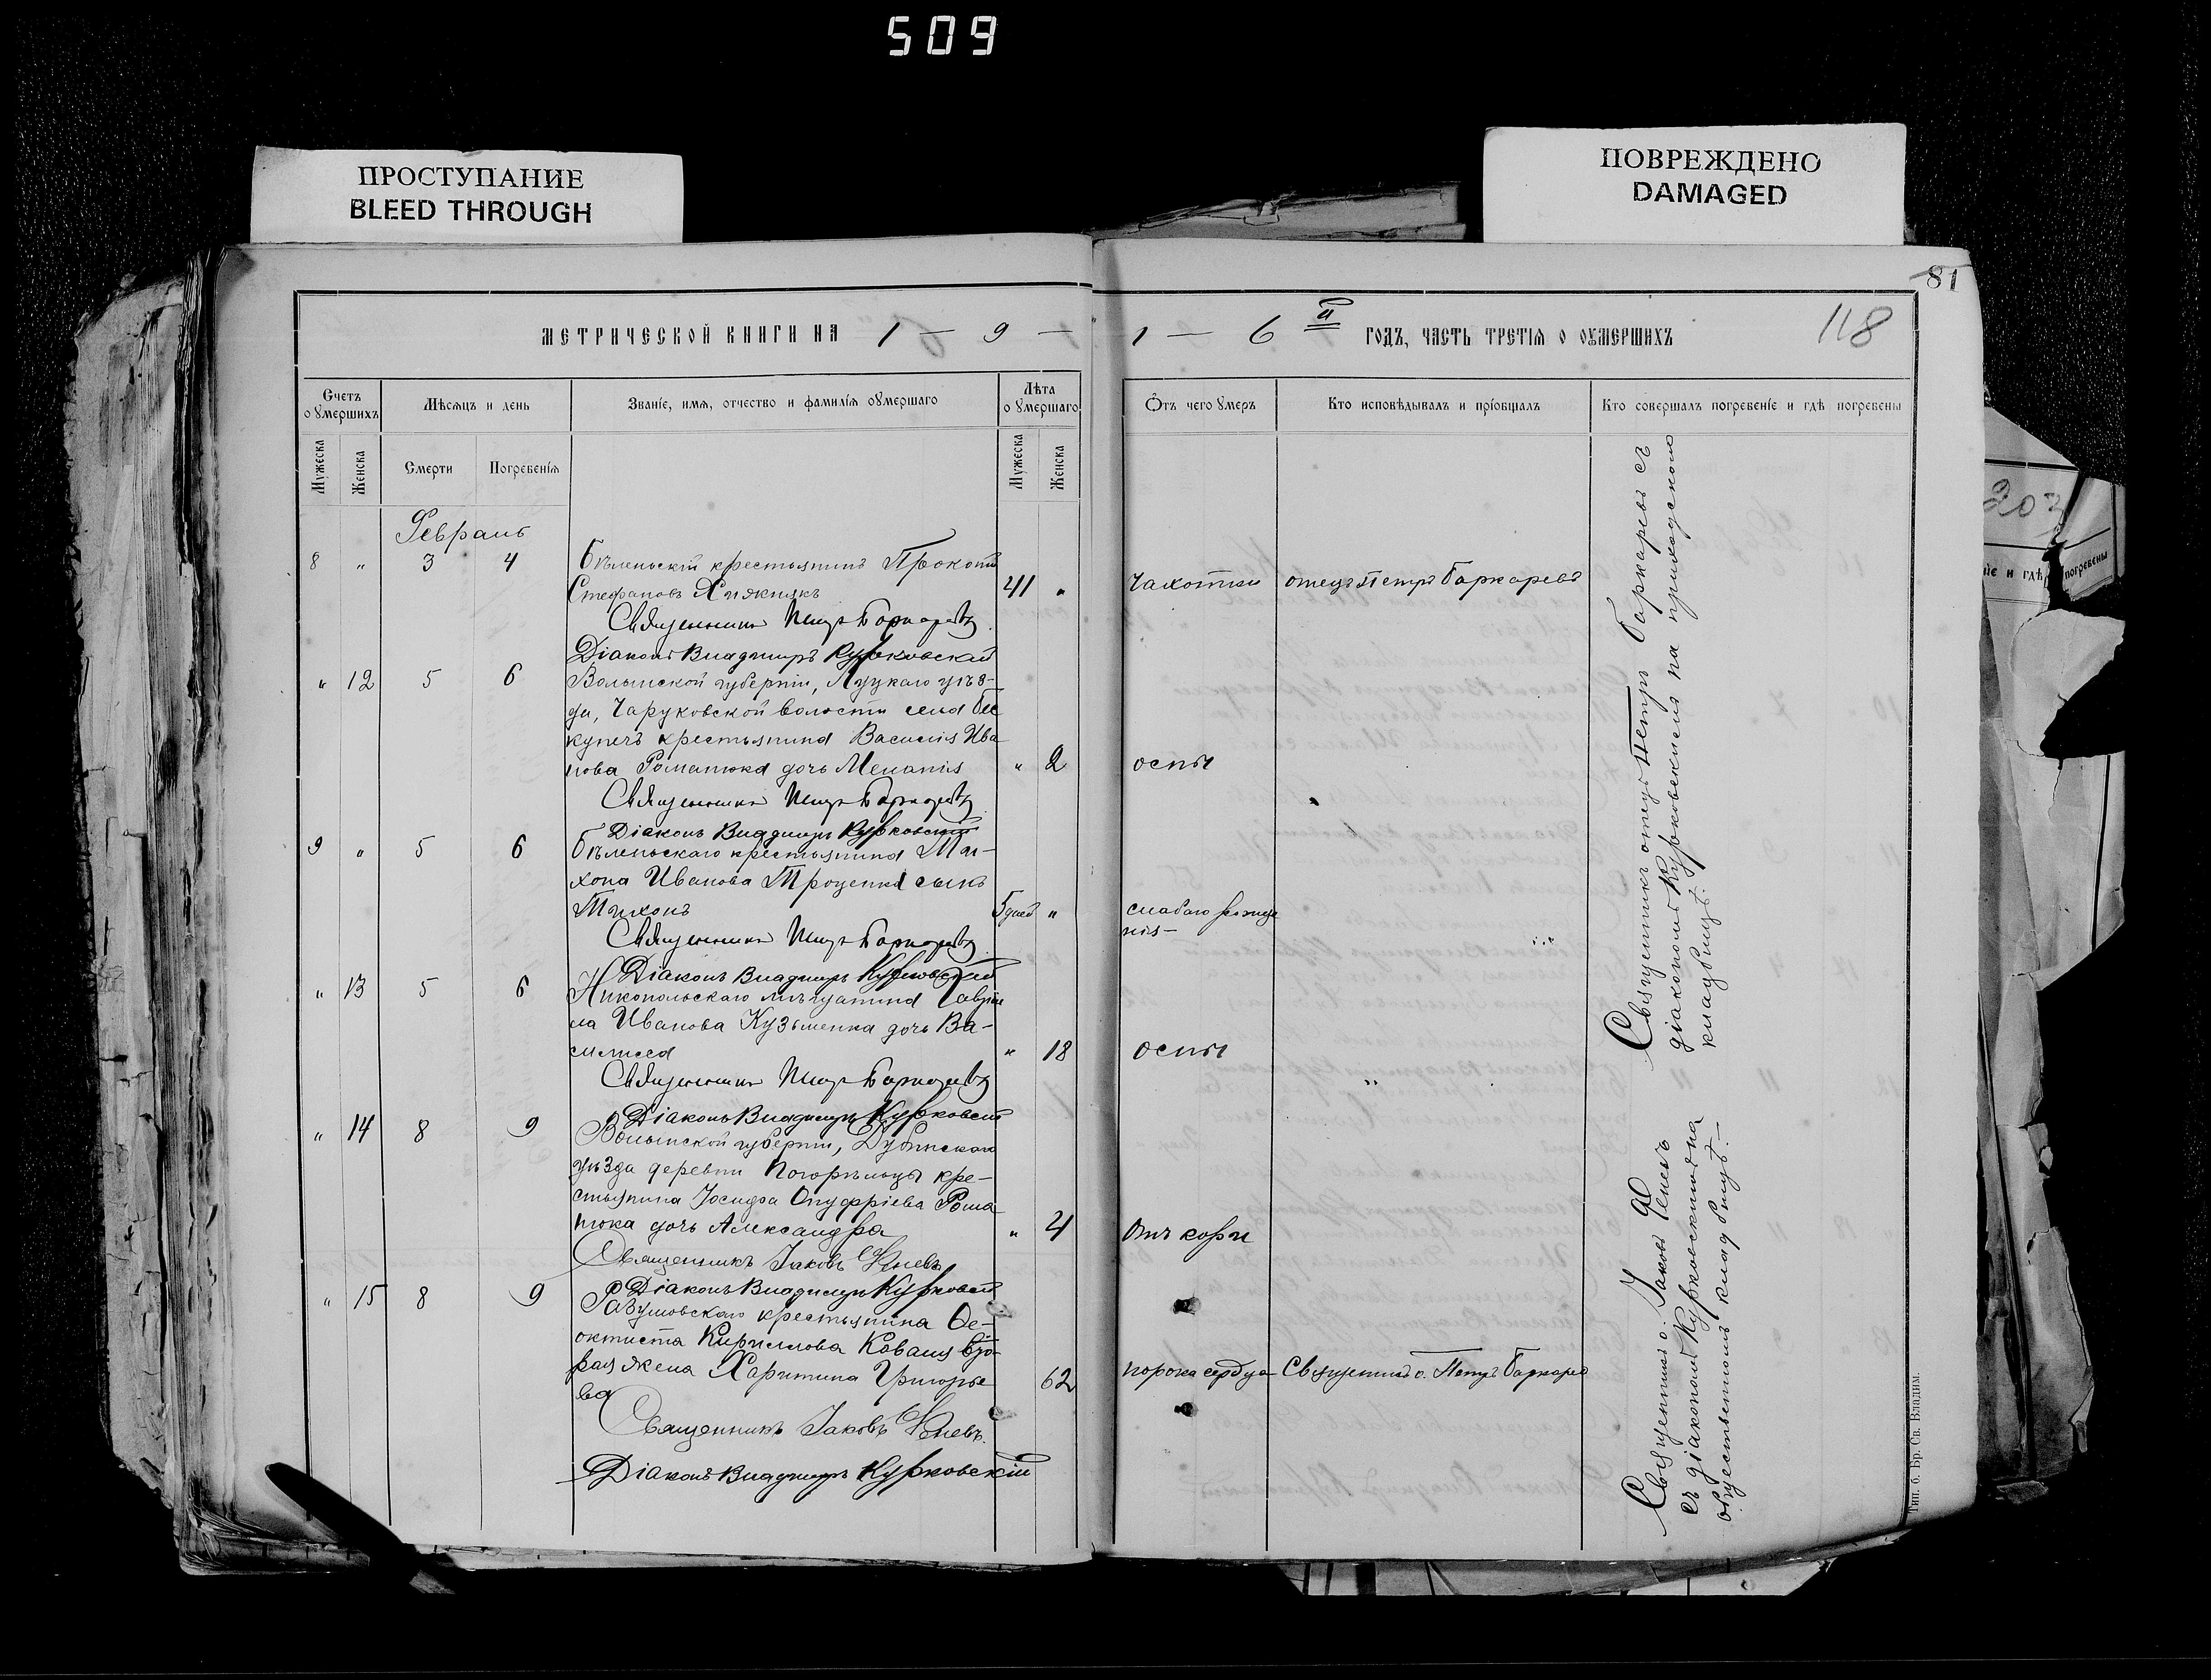 509
ПРОСТУПАНИЕ
BLEED THROUGH
ПОВРЕЖДЕНО
DAMAGED
81
118
МЕТРИЧЕСКОЙ КНИГИ НА 1 — 9 — 1 — 6 й ГОДЪ, ЧАСТЬ ТРЕТІЯ О ОУМЕРШИХЪ
Счетъ оумершихъ
Мѣсяцъ и день
Званіе, имя, отчество и фамилія оумершаго
Лѣта оумершаго
Отъ чего умеръ
Кто исповѣдывалъ и пріобщалъ
Кто совершалъ погребеніе и гдѣ погребены
Мужеска
Женска
Смерти
Погребенія
Мужеска
Женска
Февраль
8 „ 3 4 Бѣленьскій крестьянинъ Прокопій
Стефановъ Хижнякъ 41 „ Чахотки отецъ Петръ Баккаревъ
Священникъ Петръ
Діаконъ Владиміръ Курковскій
„ 12 5 6 Волынской губерніи, Луцкаго уѣз-
да, Чаруковской волости села
крестьянина Василія Ива
нова Романюка дочь Меланія „ 2 оспы
Священникъ Петръ
Діаконъ Владиміръ Курковскій
9 „ 5 6 Бѣленьскаго крестьянина Ти-
хона Иванова Троценка сынъ
Тихонъ 5 дней „ слабаго рожде
нія —
Священникъ Петръ
Діаконъ Владиміръ Курковскій
„ 13 5 6 Никопольскаго мѣщанина Гаврі
ла Иванова Кузьменка дочь Ва-
силиса „ 18 оспы „
Священникъ Петръ
Діаконъ Владиміръ Курковскій
„ 14 8 9 Волынской губерніи, Дубенскаго
уѣзда деревни Погорѣльцы кре-
стьянина Іосифа Онуфріева Рома
нюка дочь Александра „ 4 Отъ кори
Священникъ Іаковъ
Діаконъ Владиміръ Курковскій
„ 15 8 9 Разумовскаго крестьянина Ѳе-
октиста Кириллова Коваля вто-
рая жена Харитина Григорье
ва 62 порока сердца Священникъ о. Петръ
Священникъ Іаковъ
Діаконъ Владиміръ Курковскій
Священникъ отецъ Петръ съ
діакономъ Курковскимъ на приходскомъ
кладбищѣ.
Священникъ о. Іаковъ
съ діакономъ Курковскимъ на
общественномъ кладбищѣ. —
Тип. б. Бр. Св. Владим.
203
погребены